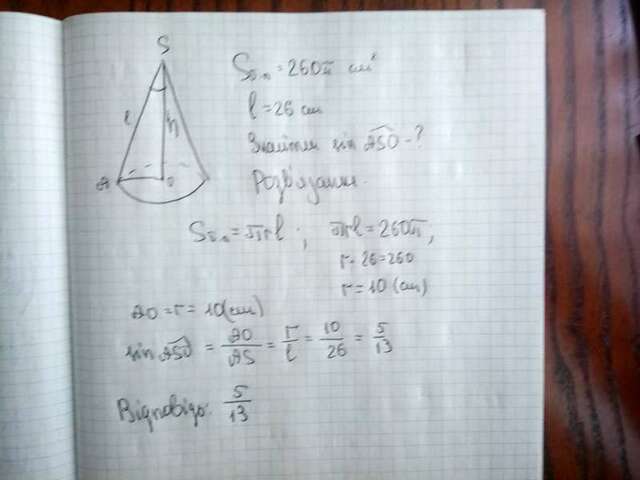 Sбіч = 260π см²
l = 26 см
Знайти sin ASO - ?
Розв'язання.
Sбіч = πrl ; πrl = 260π;
r · 26 = 260
r = 10 (см)
AO = r = 10 (см)
sin ASO = AO/AS = r/l = 10/26 = 5/13
Відповідь: 5/13
S
l
h
O
A